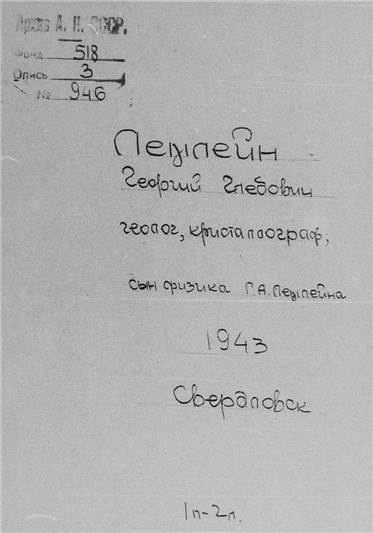 Архив А. Н. СССР.
Фонд 518
Опись 3
№ 946
Леммлейн
Георгий Глебович
геолог, кристаллограф,
сын физика Г.А. Леммлейна
1943
Свердловск
1п-2л.